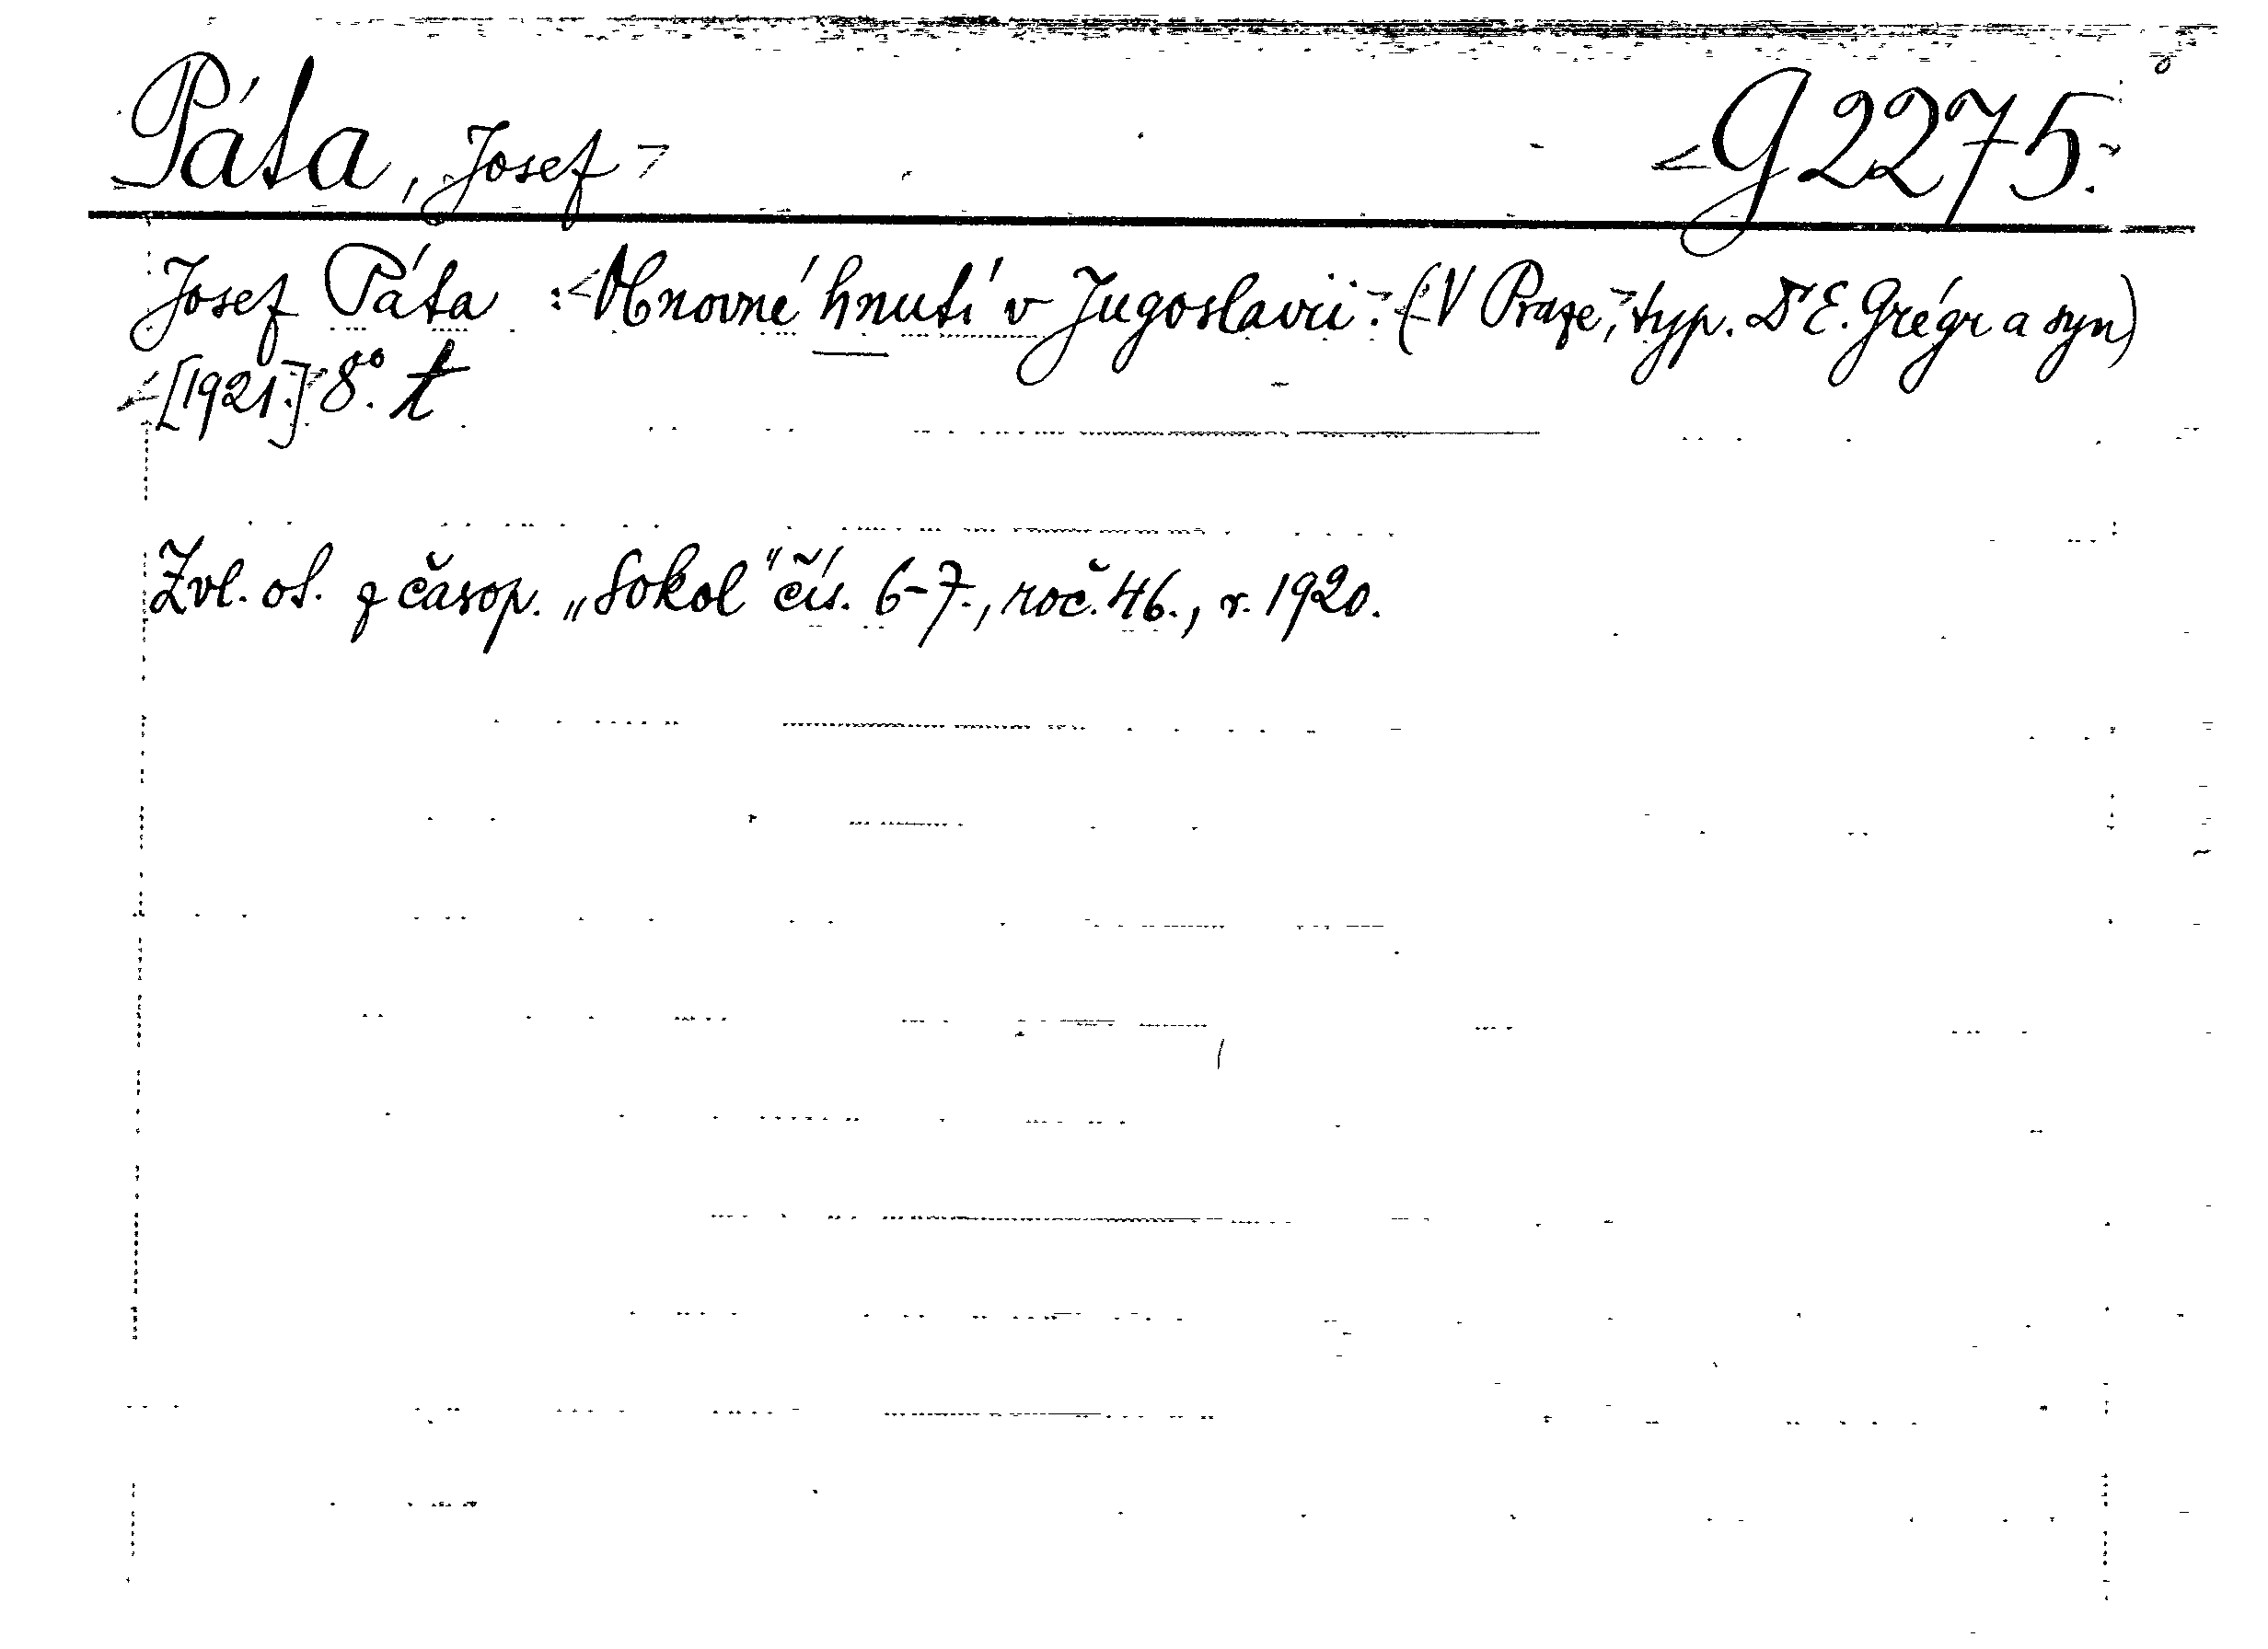 Páta, Josef G 2275.
Josef Páta: Obnovné hnutí v Jugoslavii. (V Praze, typ. Dr E. Grégr a syn)
[1921.] 8°.
Zvl. ot. z časop. „Sokol" čís. 6-7., roč. 46., r. 1920.